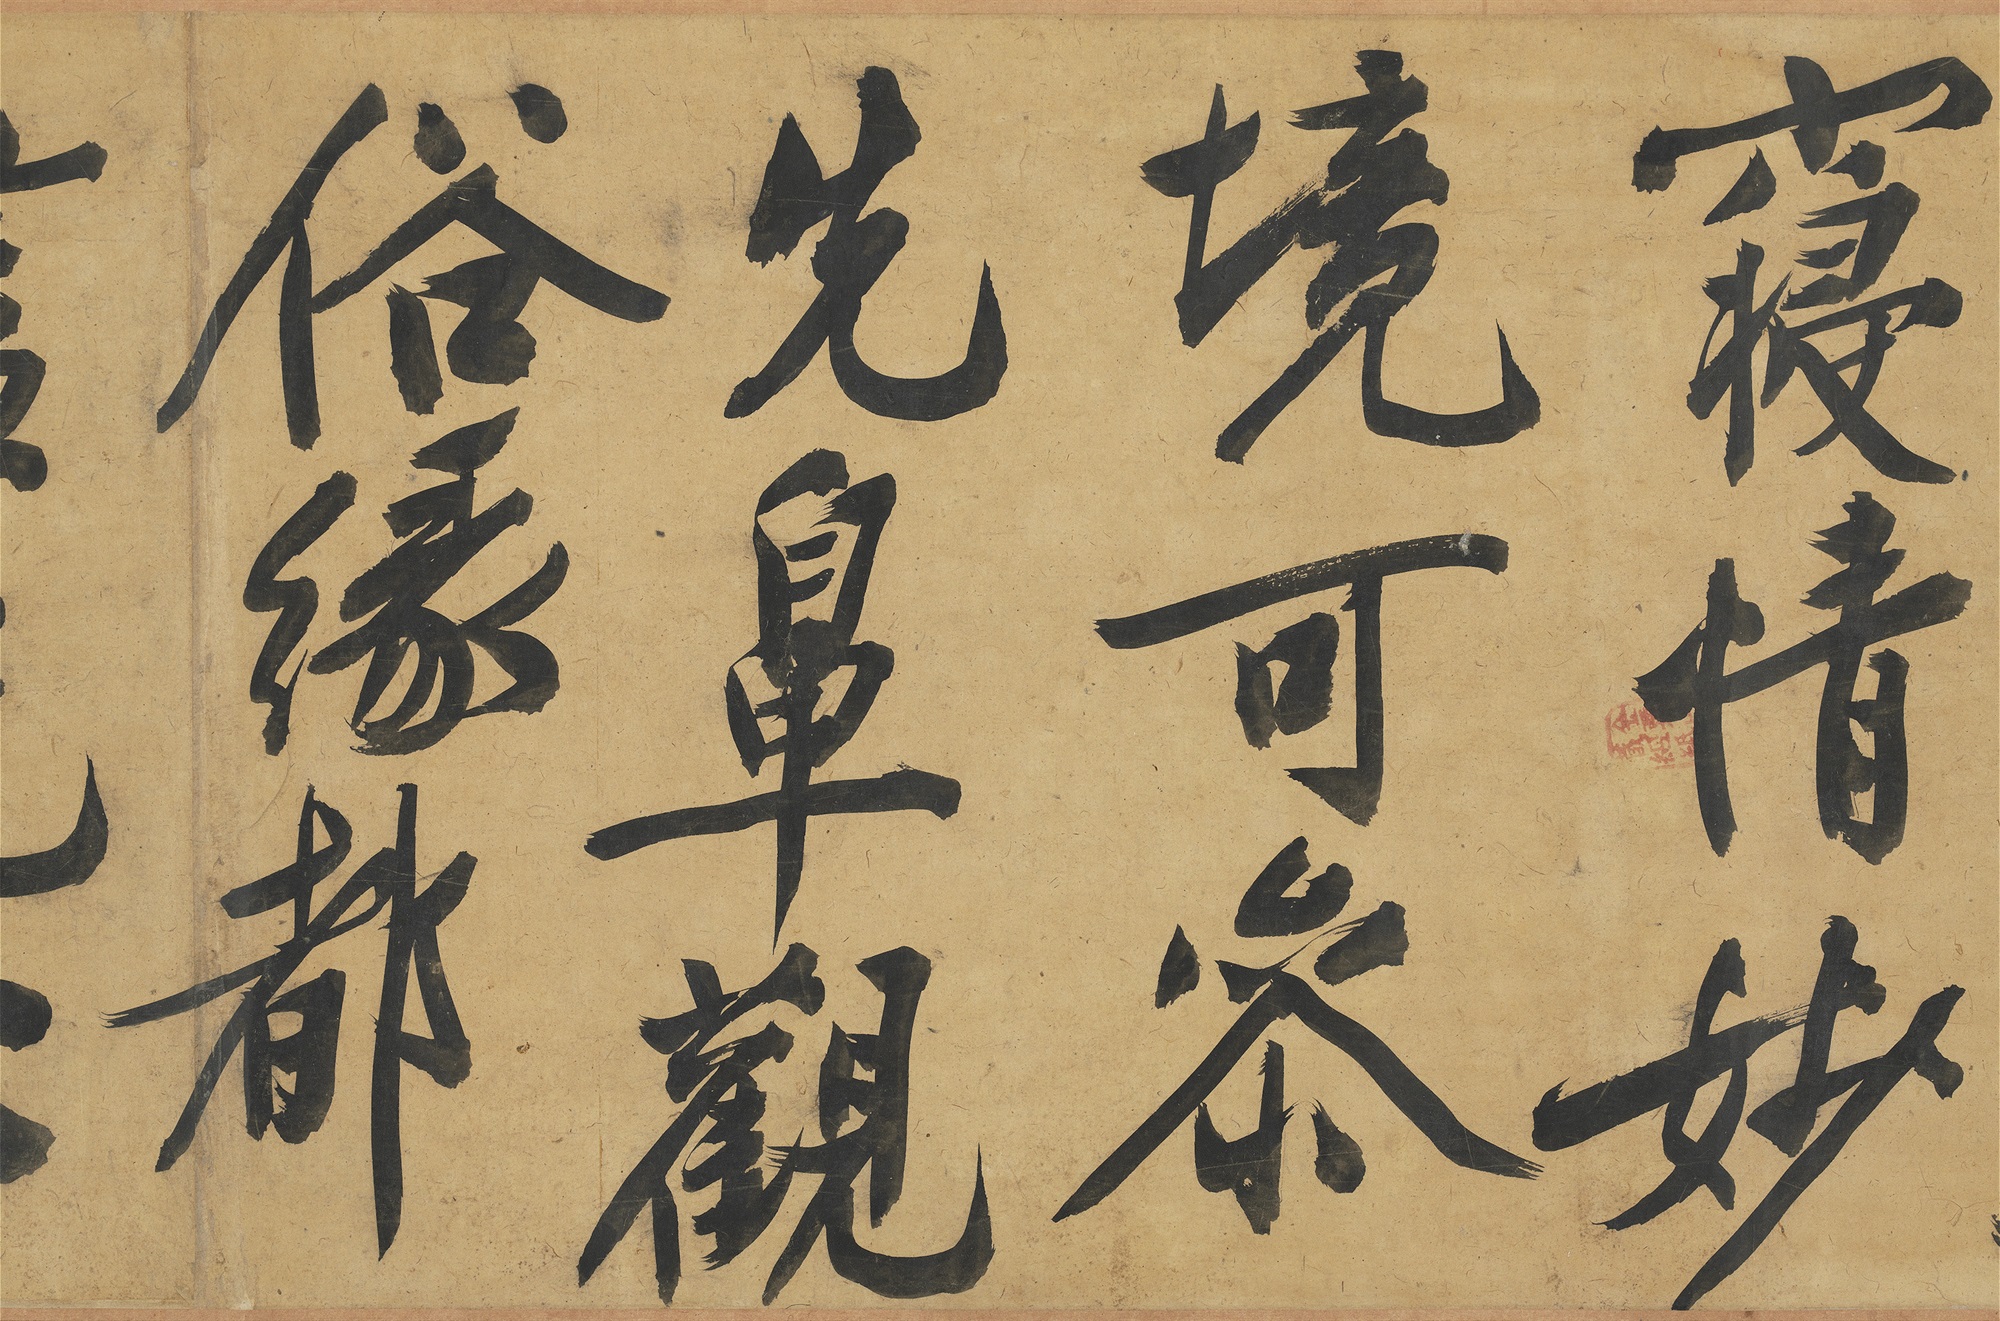 寢情妙
境可參
先皐觀
俗緣都